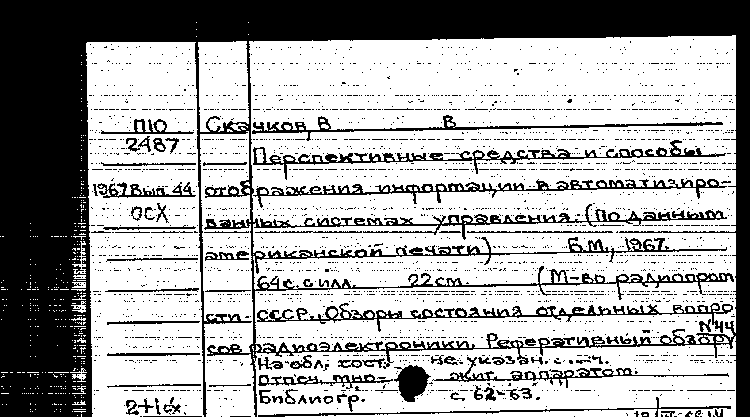 П10
2487
1967 Вып. 44
ОСХ
Скачков, В В
Перспективные средства и способы
отображения информации в автоматизиро-
ванных системах управления. (По данным
американской печати) Б.М., 1967.
64 с. с илл. 22 см. (М-во радиопром
сти СССР. Обзоры состояния отдельных вопро
сов радиоэлектроники. Реферативный обзор
№44
На обл. сост. не указан.
Отпеч. мно- жит. аппаратом.
Библиогр. с. 62-63.